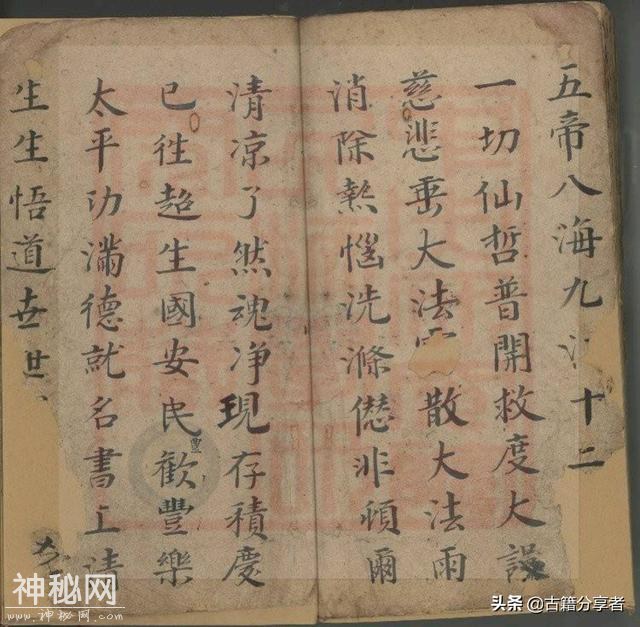 五帝八海九十二
一切仙哲普開救度大
慈悲垂大法散大法雨
消除熱惱洗滌愆非頓爾
清凉了然魂净現存積慶
已往超生國安民歡豐樂
豐
太平功滿德就名書上清
生生悟道世世
神秘网
www.神秘网.com
头条 @古籍分享者